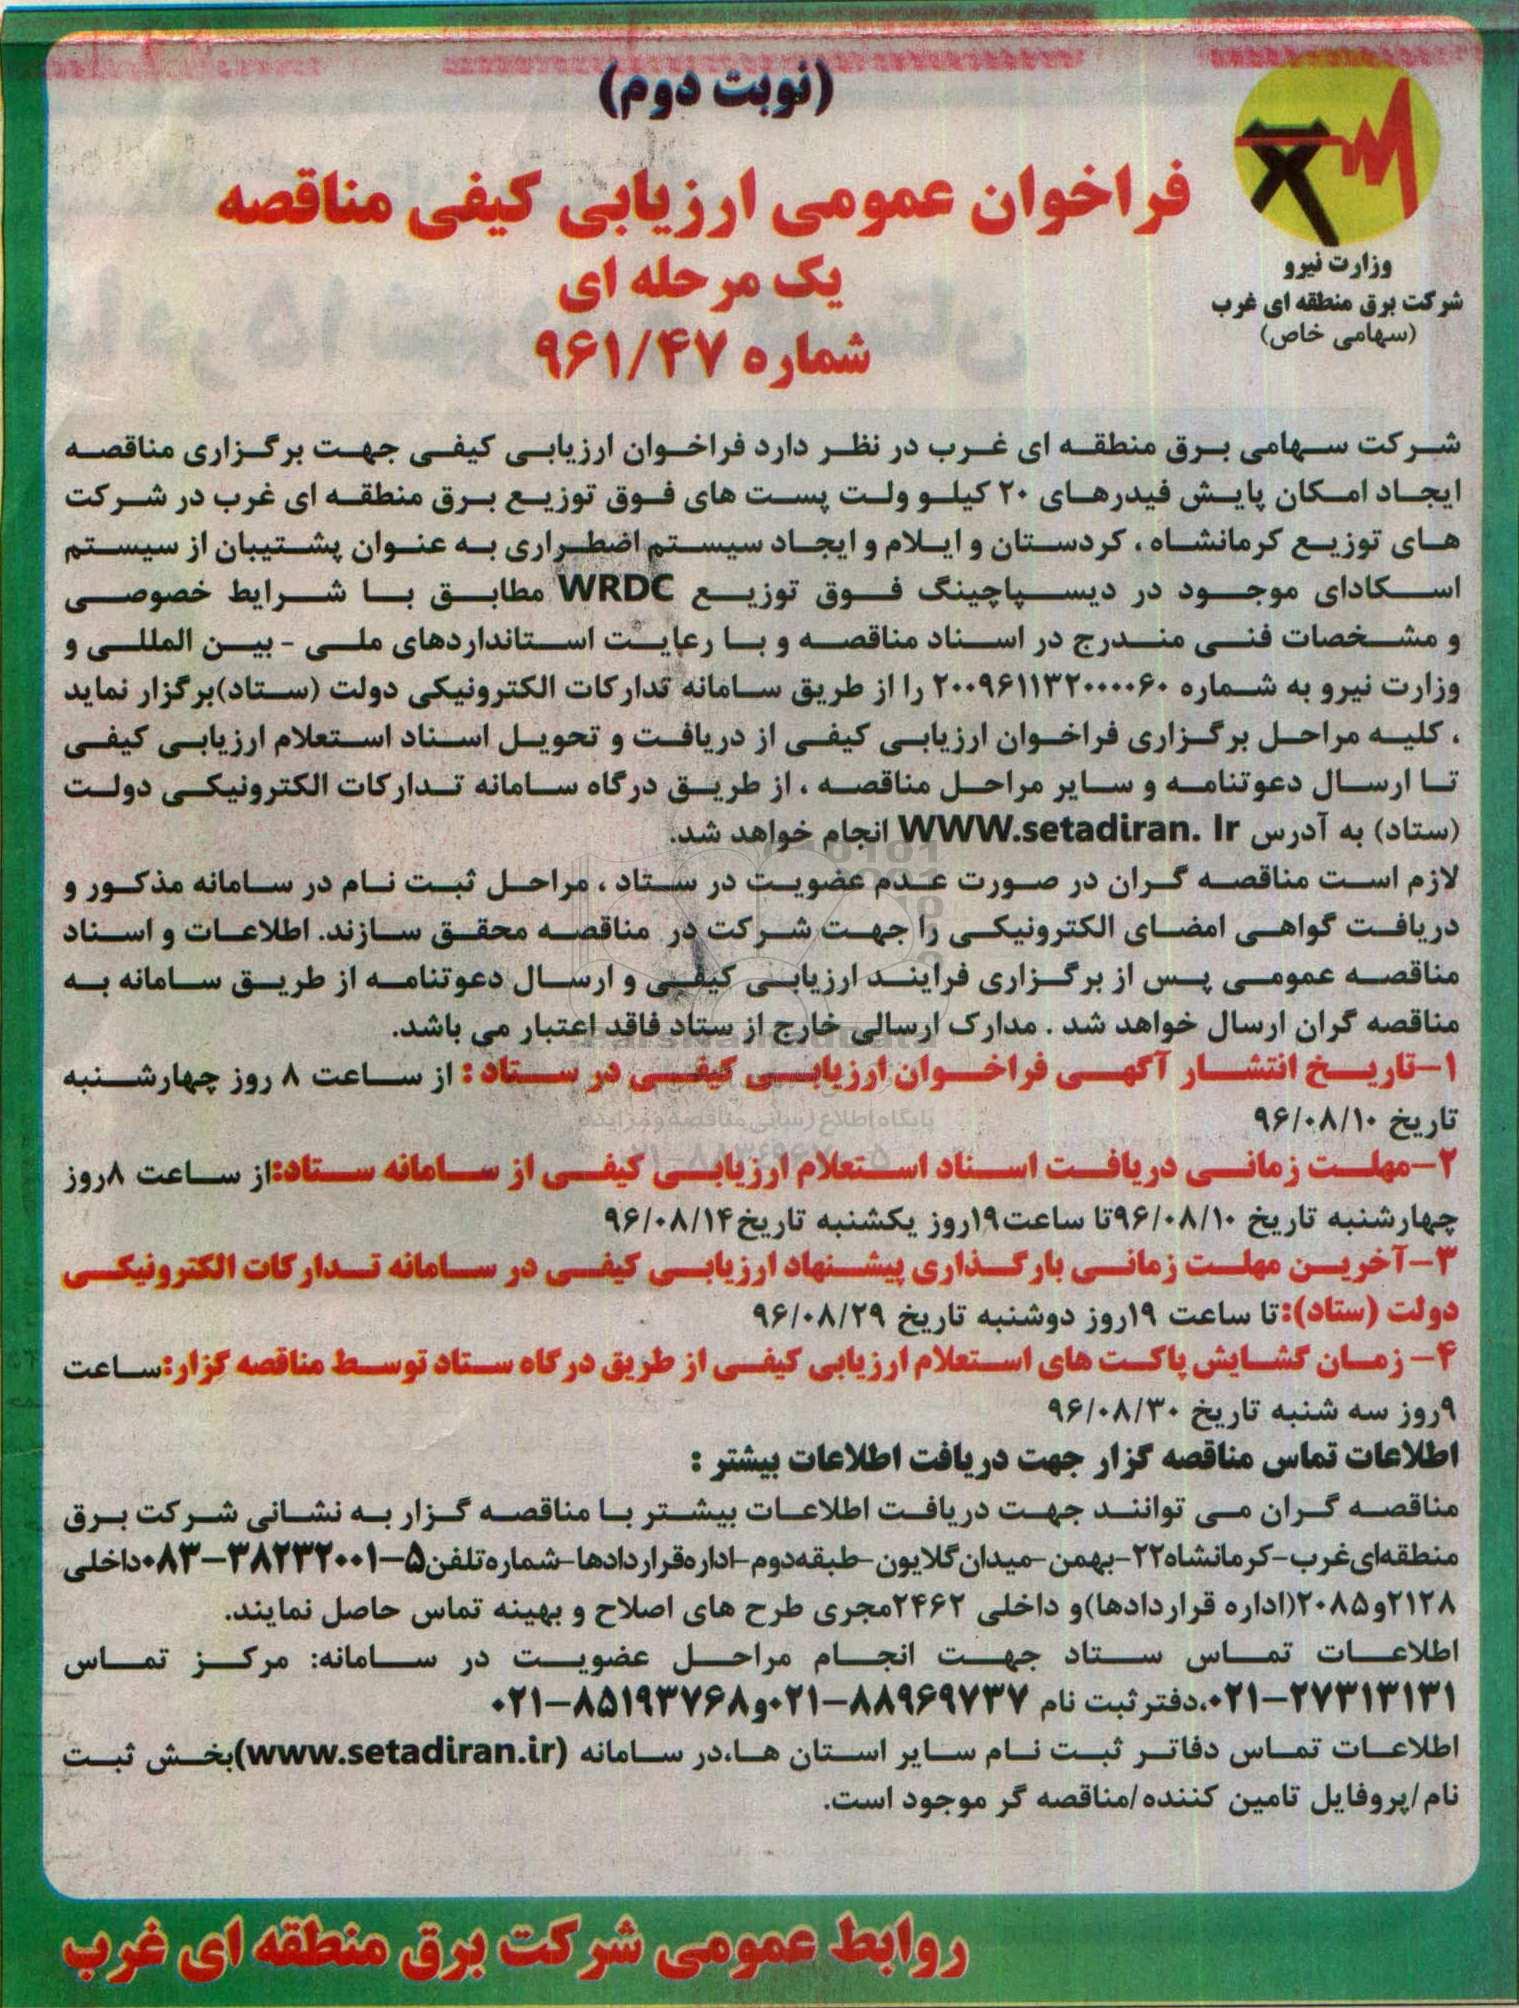 (نوبت دوم)
فراخوان عمومی ارزیابی کیفی مناقصه
یک مرحله ای
شماره ۹۶۱/۴۷
وزارت نیرو
شرکت برق منطقه ای غرب
(سهامی خاص)
شرکت سهامی برق منطقه ای غرب در نظر دارد فراخوان ارزیابی کیفی جهت برگزاری مناقصه
ایجاد امکان پایش فیدرهای ۲۰ کیلو ولت پست های فوق توزیع برق منطقه ای غرب در شرکت
های توزیع کرمانشاه ، کردستان و ایلام و ایجاد سیستم اضطراری به عنوان پشتیبان از سیستم
اسکادای موجود در دیسپاچینگ فوق توزیع WRDC مطابق با شرایط خصوصی
و مشخصات فنی مندرج در اسناد مناقصه و با رعایت استانداردهای ملی - بین المللی و
وزارت نیرو به شماره ۲۰۰۹۶۱۱۳۲۰۰۰۰۶۰ را از طریق سامانه تدارکات الکترونیکی دولت (ستاد)برگزار نماید
، کلیه مراحل برگزاری فراخوان ارزیابی کیفی از دریافت و تحویل اسناد استعلام ارزیابی کیفی
تا ارسال دعوتنامه و سایر مراحل مناقصه ، از طریق درگاه سامانه تدارکات الکترونیکی دولت
(ستاد) به آدرس WWW.setadiran. Ir انجام خواهد شد.
لازم است مناقصه گران در صورت عدم عضویت در ستاد ، مراحل ثبت نام در سامانه مذکور و
دریافت گواهی امضای الکترونیکی را جهت شرکت در مناقصه محقق سازند. اطلاعات و اسناد
مناقصه عمومی پس از برگزاری فرایند ارزیابی کیفی و ارسال دعوتنامه از طریق سامانه به
مناقصه گران ارسال خواهد شد . مدارک ارسالی خارج از ستاد فاقد اعتبار می باشد.
۱-تاریخ انتشار آگهی فراخوان ارزیابی کیفی در ستاد : از ساعت ۸ روز چهارشنبه
تاریخ ۹۶/۰۸/۱۰
۲-مهلت زمانی دریافت اسناد استعلام ارزیابی کیفی از سامانه ستاد:از ساعت ۸روز
چهارشنبه تاریخ ۹۶/۰۸/۱۰تا ساعت۱۹روز یکشنبه تاریخ۹۶/۰۸/۱۴
۳-آخرین مهلت زمانی بارگذاری پیشنهاد ارزیابی کیفی در سامانه تدارکات الکترونیکی
دولت (ستاد):تا ساعت ۱۹روز دوشنبه تاریخ ۹۶/۰۸/۲۹
۴- زمان گشایش پاکت های استعلام ارزیابی کیفی از طریق درگاه ستاد توسط مناقصه گزار:ساعت
۹روز سه شنبه تاریخ ۹۶/۰۸/۳۰
اطلاعات تماس مناقصه گزار جهت دریافت اطلاعات بیشتر :
مناقصه گران می توانند جهت دریافت اطلاعات بیشتر با مناقصه گزار به نشانی شرکت برق
منطقه‌ای‌غرب-کرمانشاه۲۲-بهمن-میدان‌گلایون-طبقه‌دوم-اداره‌قراردادها-شماره‌تلفن۵-۰۸۳-۳۸۲۳۲۰۰۱داخلی
۲۱۲۸و۲۰۸۵(اداره قراردادها)و داخلی ۲۴۶۲مجری طرح های اصلاح و بهینه تماس حاصل نمایند.
اطلاعات تماس ستاد جهت انجام مراحل عضویت در سامانه: مرکز تماس
۰۲۱-۲۷۳۱۳۱۳۱،دفتر ثبت نام ۰۲۱-۸۸۹۶۹۷۳۷و۰۲۱-۸۵۱۹۳۷۶۸
اطلاعات تماس دفاتر ثبت نام سایر استان ها،در سامانه (www.setadiran.ir)بخش ثبت
نام/پروفایل تامین کننده/مناقصه گر موجود است.
روابط عمومی شرکت برق منطقه ای غرب